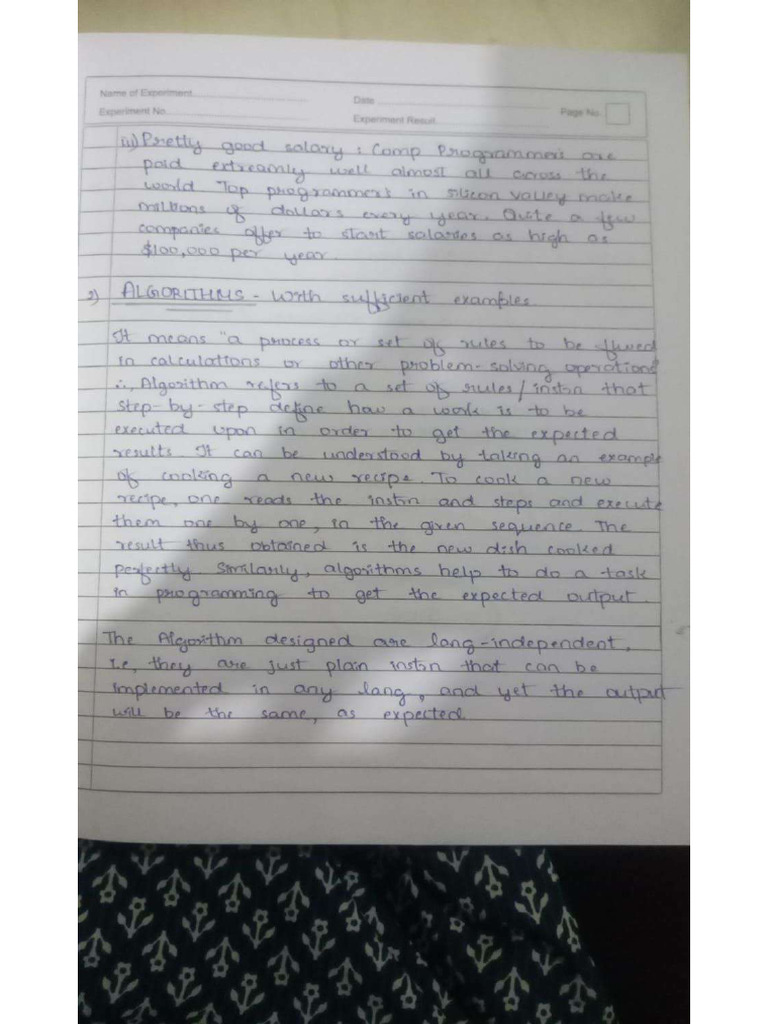 Name of Experiment
Date
Page No.
Experiment No.
Experiment Result
Pretty good salary : Comp Programmers are
paid extreamly well almost all across the
world Top programmers in silicon valley make
millions of dollars every year. Quite a few
companies offer to start salaries as high as
$100,000 per year.
2) ALGORITHMS - With sufficient examples
It means "a process or set of rules to be
in calculations or other problem-solving operations
∴, Algorithm refers to a set of rules/instrn that
step-by-step define how a work is to be
executed upon in order to get the expected
results. It can be understood by taking an example
of cooking a new recipe. To cook a new
recipe, one reads the instrn and steps and execute
them one by one, in the given sequence. The
result thus obtained is the new dish cooked
perfectly. Similarly, algorithms help to do a task
in programming to get the expected output.
The Algorithm designed are lang-independent,
i.e, they are just plain instrn that can be
implemented in any lang, and yet the output
will be the same, as expected.